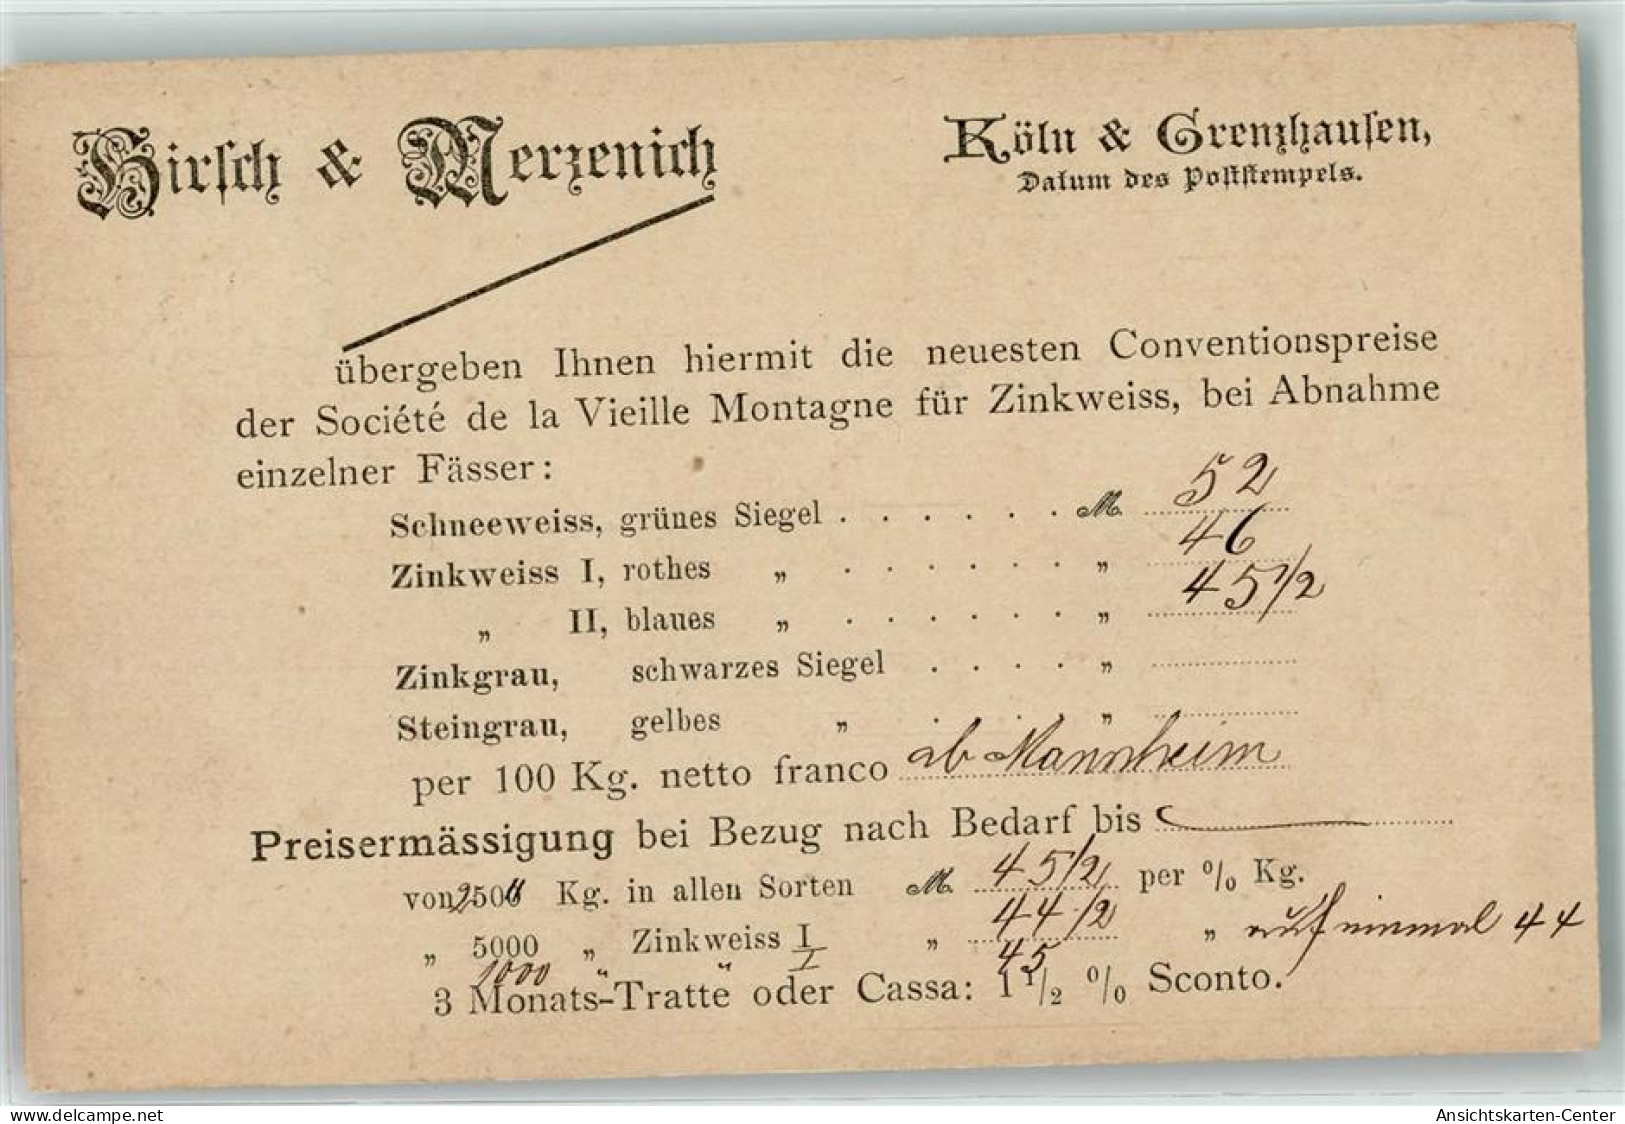 Hirsch & Merzenich
Köln & Grenzhausen,
Datum des Poststempels.
übergeben Ihnen hiermit die neuesten Conventionspreise
der Société de la Vieille Montagne für Zinkweiss, bei Abnahme
einzelner Fässer:
Schneeweiss, grünes Siegel . . . . . . M. 52
Zinkweiss I, rothes „ . . . . . . „ 46
„ II, blaues „ . . . . . . „ 45 1/2
Zinkgrau, schwarzes Siegel . . . . „
Steingrau, gelbes „ . . . „
per 100 Kg. netto franco ab Mannheim
Preisermässigung bei Bezug nach Bedarf bis
von 2500 Kg. in allen Sorten M. 45 1/2 per % Kg.
„ 5000 „ Zinkweiss I „ 44 1/2 „ auf einmal 44
1000 „ „ I 45
3 Monats-Tratte oder Cassa: 1 1/2 % Sconto.
delcampe.net
Ansichtskarten-Center